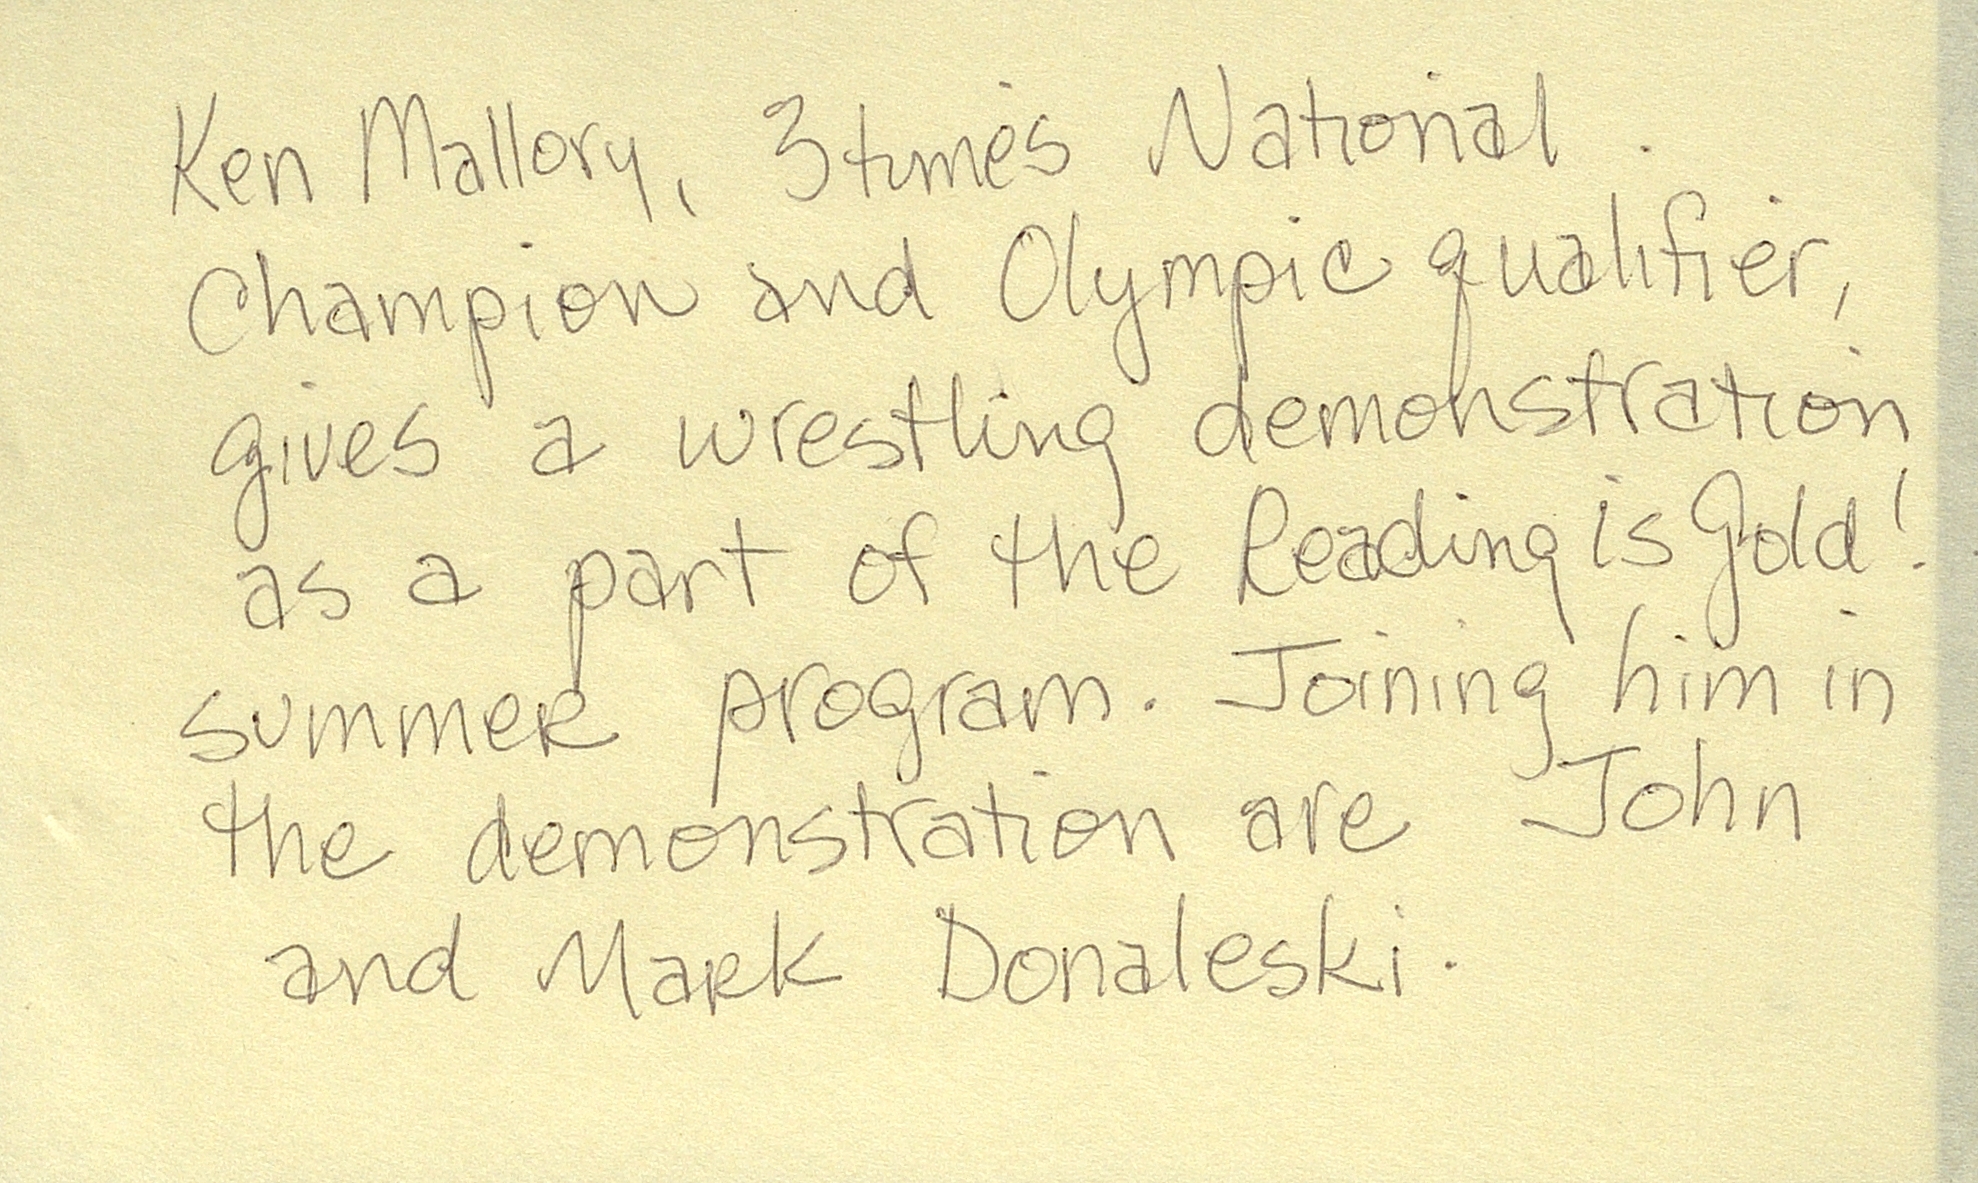 Ken Mallory, 3 times National
Champion and Olympic qualifier,
gives a wrestling demonstration
as a part of the Reading is Gold!
summer program. Joining him in
the demonstration are John
and Mark Donaleski.